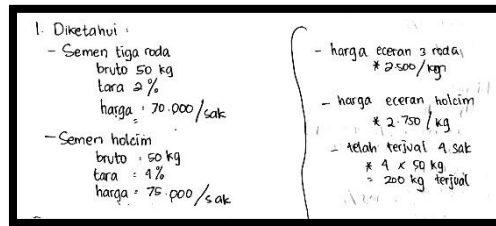 1. Diketahui :
- Semen tiga roda
bruto 50 kg
tara 2%
harga : 70.000/sak
- Semen holcim
bruto : 50 kg
tara : 4%
harga : 75.000/sak
- harga eceran 3 roda
* 2.500/kg
- harga eceran holcim
* 2.750 / kg
- telah terjual 4 sak
* 4 x 50 kg
= 200 kg terjual